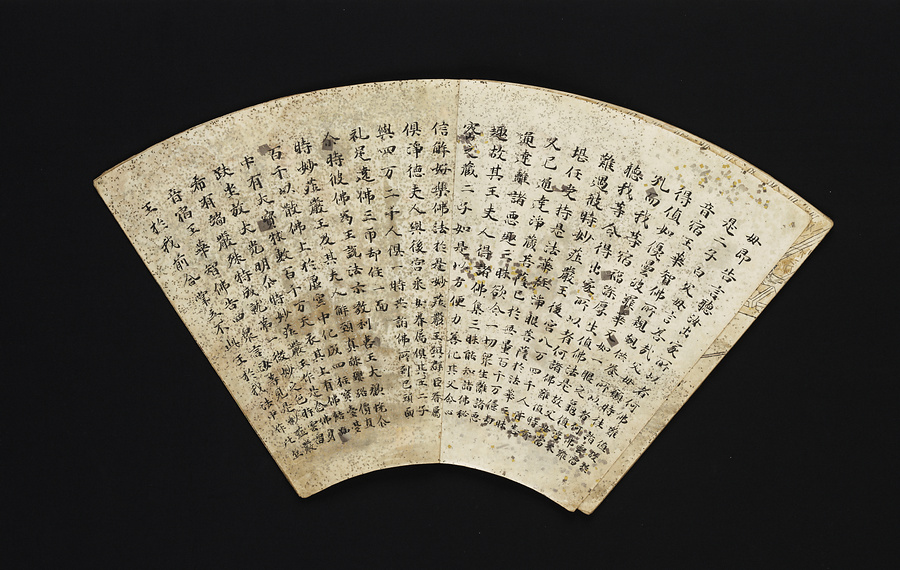 母即告言聽汝出家所以者何佛難
是二子白父母言善哉父母願時往詣
音宿王華智佛所親近供養所以者何佛難
得值如優曇波羅華又如一眼之龜值
孔而我等宿福深厚生值佛法是故父母當
聽我等令得出家所以者何諸佛難值時亦
難遇彼時妙莊嚴王後宮八万四千人皆悉
堪任受持是法華經淨眼菩薩於法華三昧
久已通達淨藏菩薩已於无量百千万億劫
通達離諸惡趣三昧欲令一切衆生離諸惡
趣故其王夫人得諸佛集三昧能知諸佛秘
密之藏二子如是以方便力善化其父令心
信解好樂佛法於是妙莊嚴王與群臣眷屬
俱淨德夫人與後宮采女眷屬俱其王二子
與四万二千人俱一時共詣佛所到已頭面
礼足遶佛三帀却住一面
尒時彼佛為王說法示教利喜王大歡悅尒
時妙莊嚴王及其夫人解頸真珠瓔珞價直
百千以散佛上於虛空中化成四柱寶臺臺
中有大寶床敷百千万天衣其上有佛結加
趺坐放大光明尒時妙莊嚴王作是念佛身
希有端嚴殊特成就第一微妙之色時雲雷
音宿王華智佛告四衆言汝等見是妙莊嚴
王於我前合掌立不此王於我法中作比丘